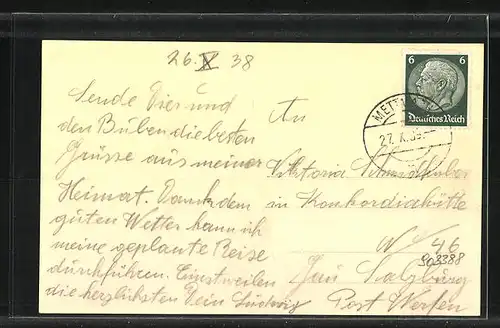 26. X 38
Sende Dir und
den Buben die besten
Grüsse aus meiner
Heimat. Dank dem
guten Wetter kann ich
meine geplante Reise
durchführen. Einstweilen
die herzlichsten Dein Ludwig
An
Viktoria
in Konkordiahütte
No 46
903388
Gau Salzburg
Post Werfen
6 6
Deutsches Reich
METT
27. X.